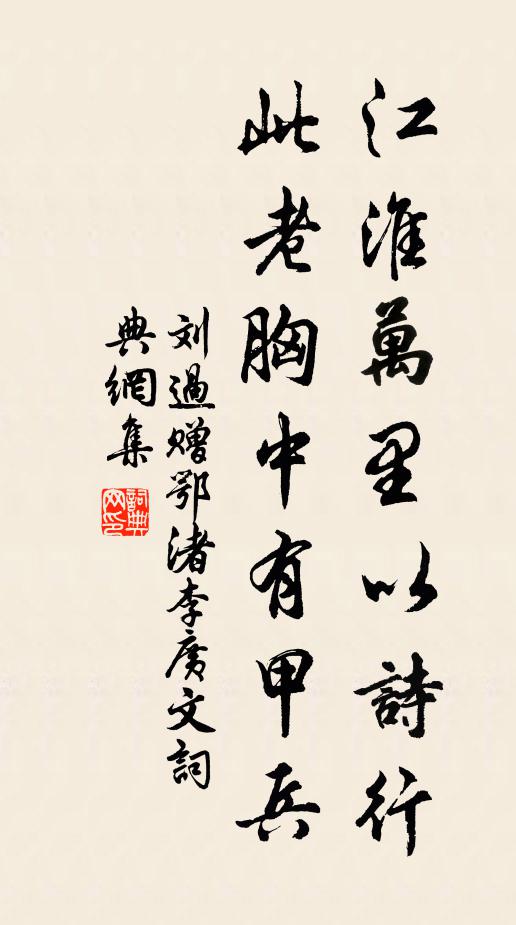 江淮萬里以詩行
此老胸中有甲兵
刘過赠鄂渚李廣文詞
典網集
詞典网印